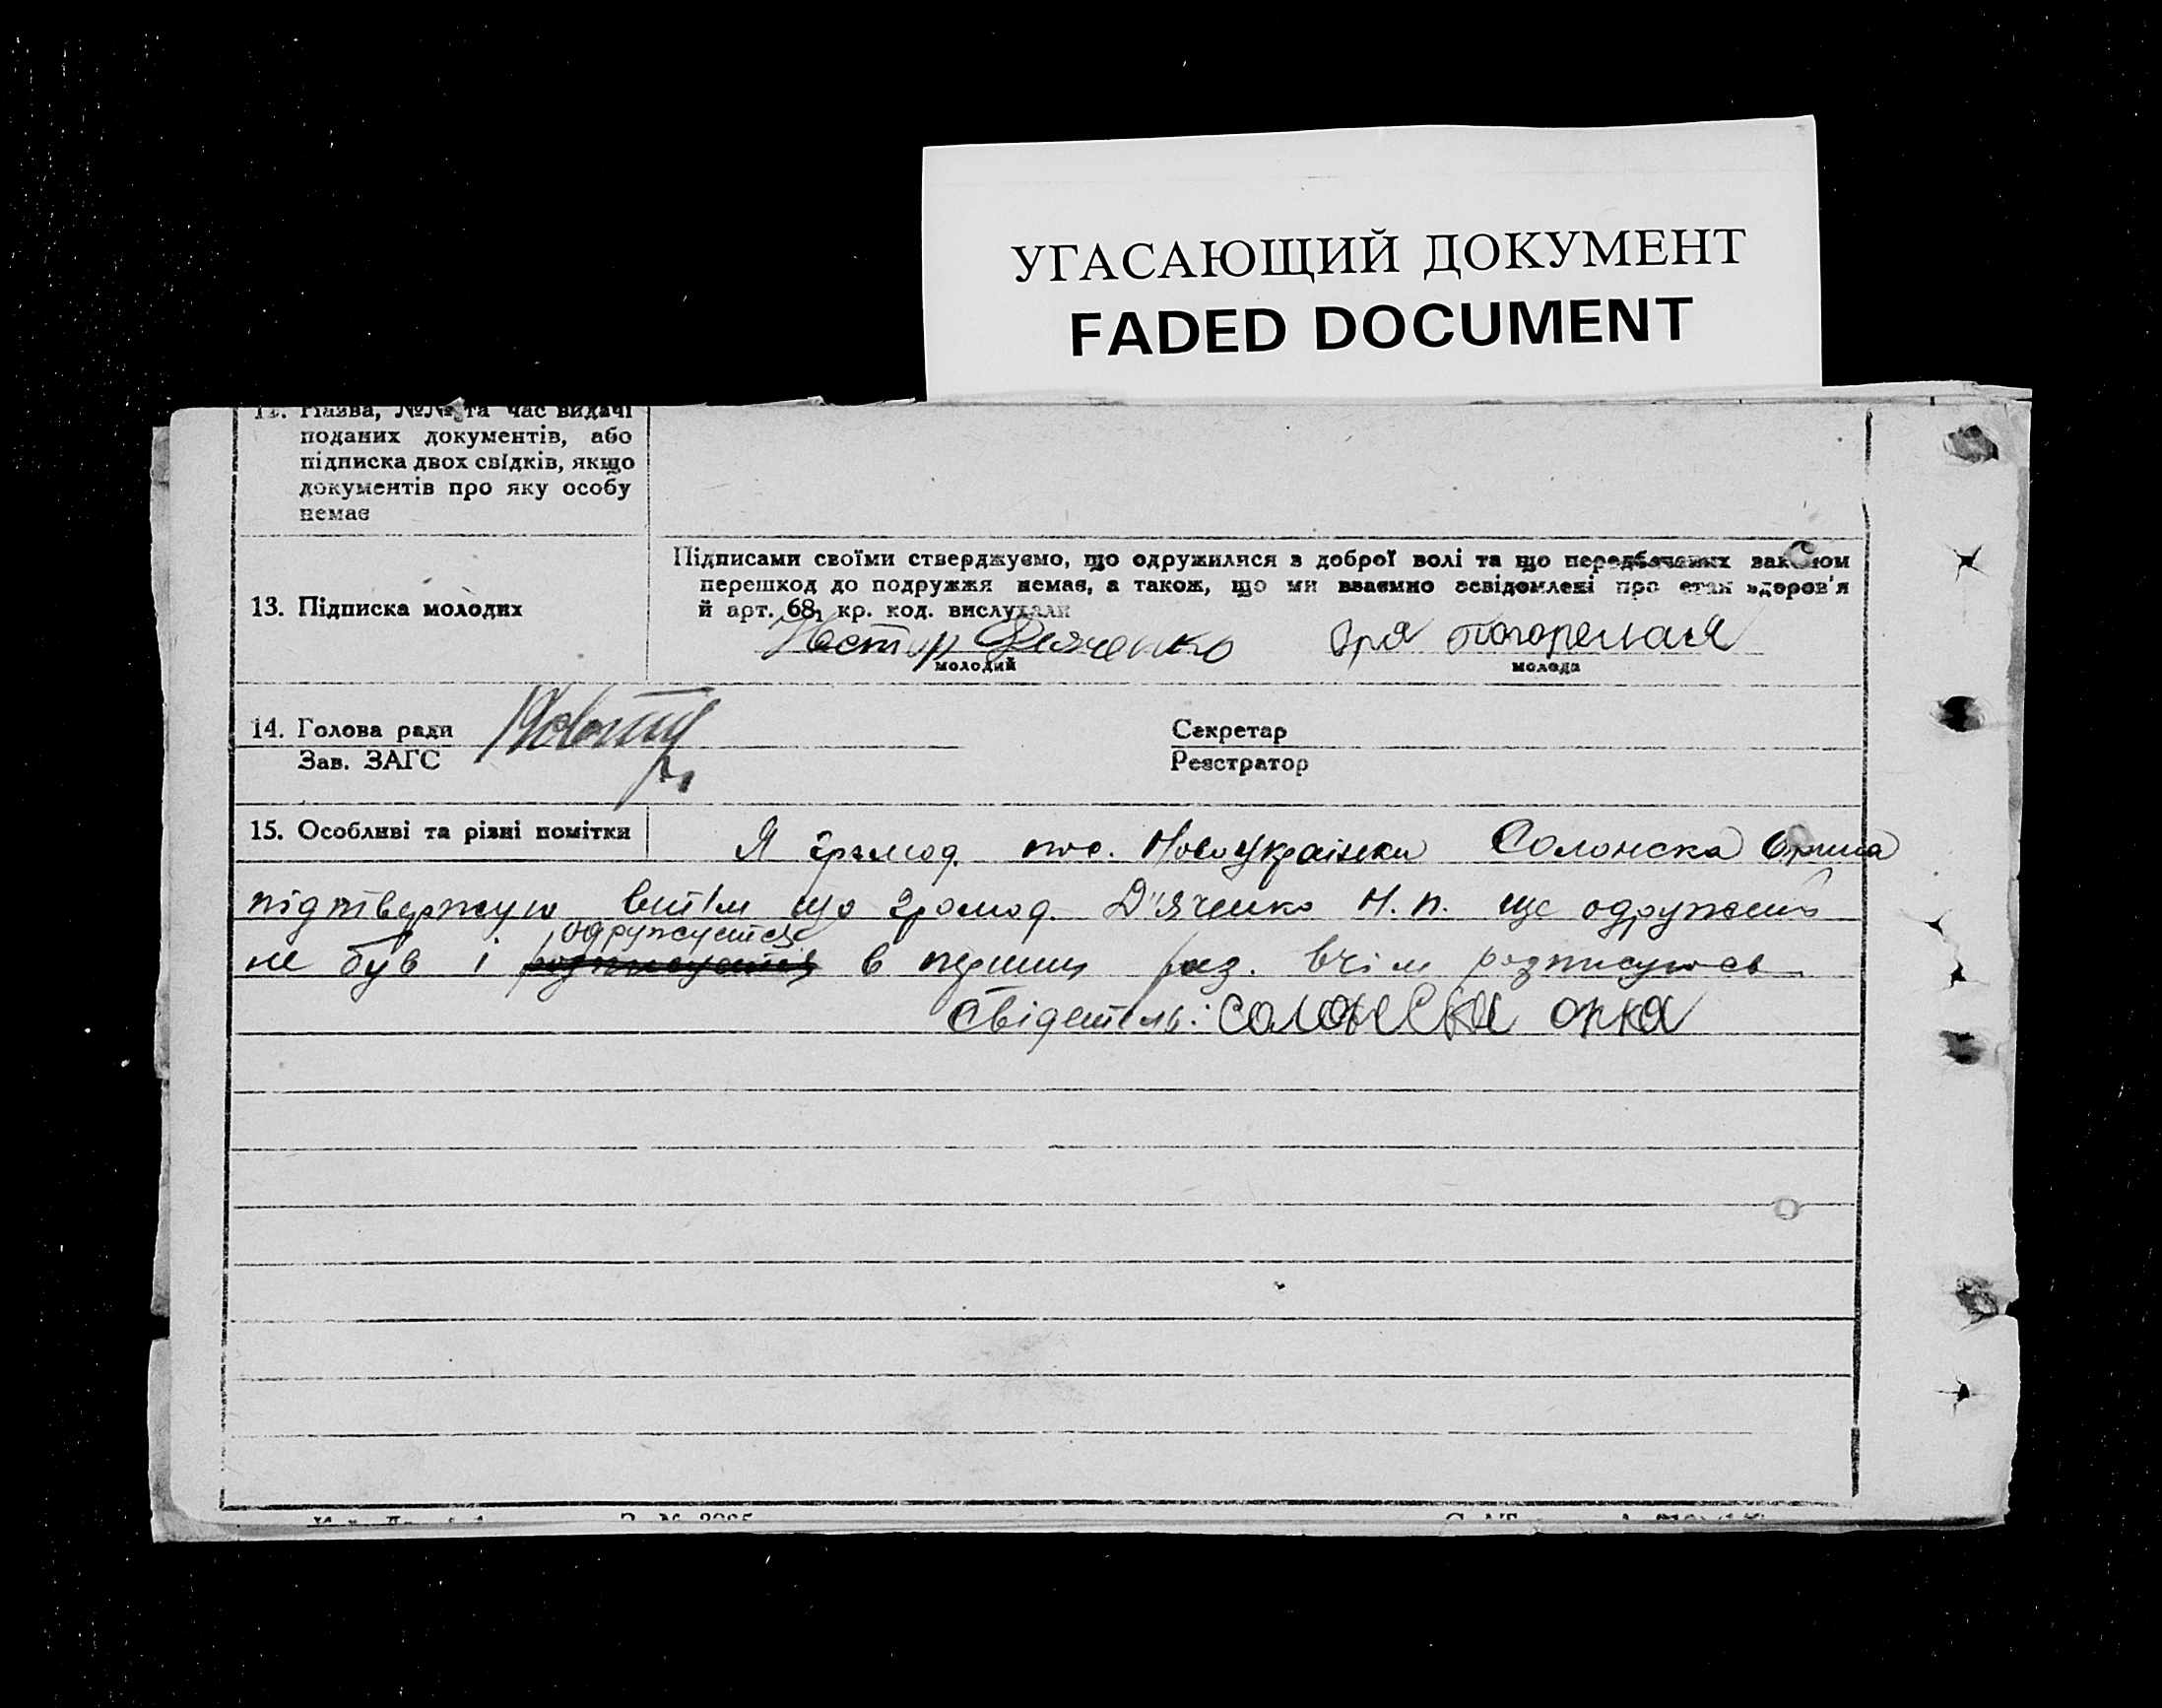 УГАСАЮЩИЙ ДОКУМЕНТ
FADED DOCUMENT
12. Назва, №№ та час видачі
поданих документів, або
підписка двох свідків, якщо
документів про яку особу
немає
13. Підписка молодих
Підписами своїми стверджуємо, що одружилися з доброї волі та що передбачених законом
перешкод до подружжя немає, а також, що ми взаємно освідомлені про стан здоров'я
й арт. 68, кр. код. вислухали
Нестир Дяченко
Оря погорелая
молодий
молода
14. Голова ради
Зав. ЗАГС
Секретар
Реєстратор
15. Особливі та різні помітки
Я громод. пос. Новоукраінки Солонска Орина
підтвержую втім що громод. Д'яченко Н. п. ще одружений
одружується
не був і в перший раз. вчім розписуюсь
Свідетель: солонска орка